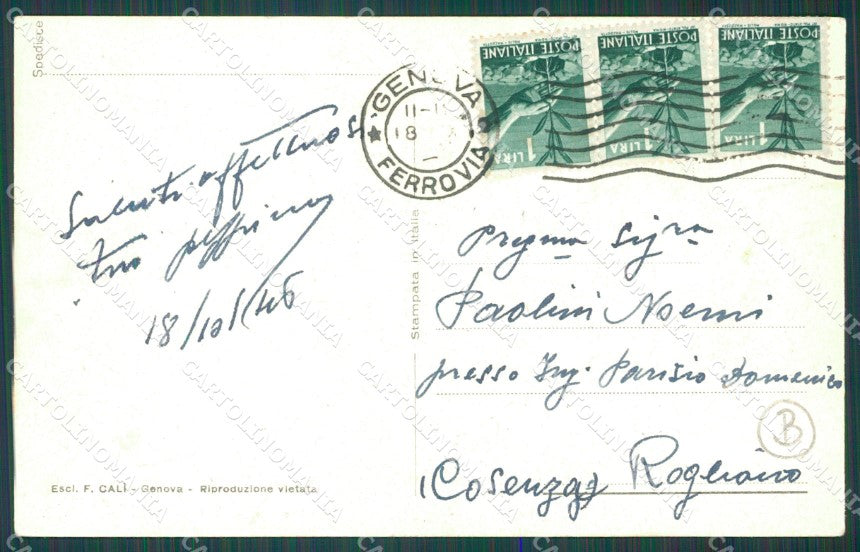 Spedisce
GENOVA
FERROVIA
POSTE ITALIANE
1 LIRA
POSTE ITALIANE
1 LIRA
POSTE ITALIANE
1 LIRA
Saluti affettuosi
tuo Peppino
18/12/46
Stampata in Italia
Pregma Sigra
Paolini Noemi
presso Ing. Parisio Domenico
(Cosenza) Rogliano
B
Escl. F. CALÌ - Genova - Riproduzione vietata
CARTOLINOMANIA